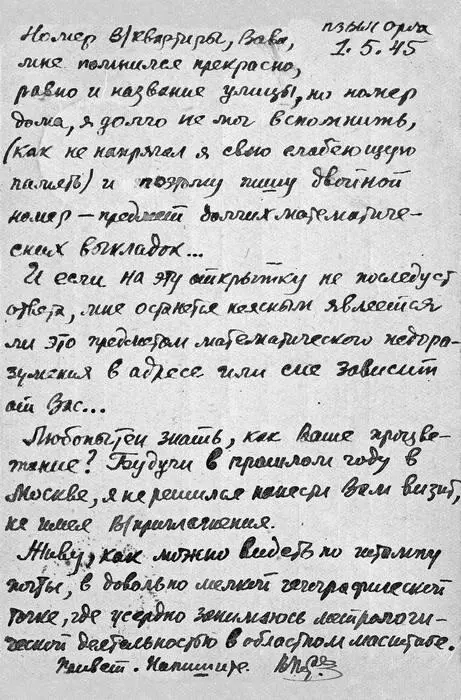 Номер В/квартиры, Вава,
1.5.45
мне помнился прекрасно,
равно и название улицы, но номер
дома, я долго не мог вспомнить,
(как не напрягал я свою слабеющую
память) и поэтому пишу двойной
номер – предмет долгих математиче-
ских выкладок...
И если на эту открытку не последует
ответа, мне останется неясным является
ли это предметом математического недора-
зумения в адресе или сие зависит
от Вас...
Любопытен знать, как Ваше процве-
тание? Будучи в прошлом году в
Москве, я не решился нанести Вам визит,
не имея В/приглашения.
Живу, как можно видеть по штампу
почты, в довольно мелкой географической
точке, где усердно занимаюсь
деятельностью в областном масштабе.
Привет. Напишите.